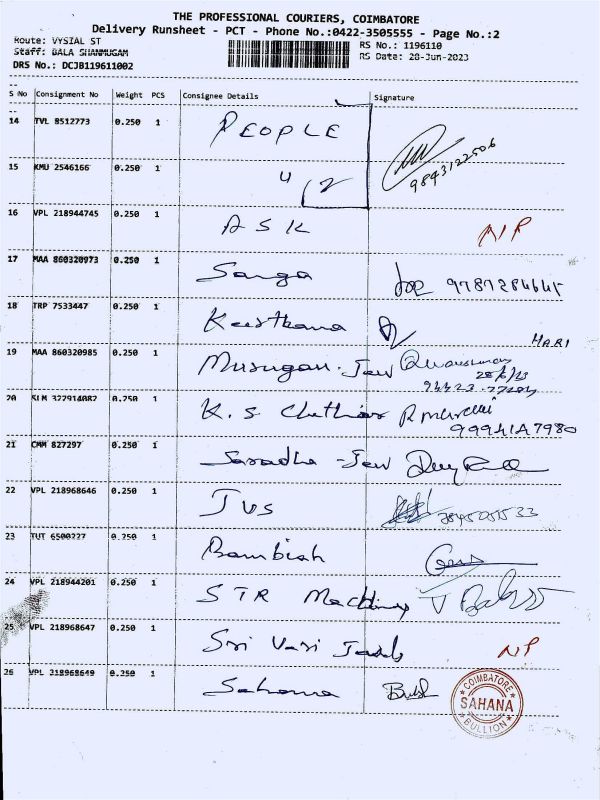 THE PROFESSIONAL COURIERS, COIMBATORE
Delivery Runsheet - PCT - Phone No.:0422-3505555 - Page No.:2
Route: VYSIAL ST RS No.: 1196110
Staff: BALA SHANMUGAM RS Date: 28-Jun-2023
DRS No.: DCJB119611002
S No Consignment No Weight PCS Consignee Details Signature
14 TVL 8512773 0.250 1 PEOPLE
15 KMU 2546166 0.250 1 " (2 9843122506
16 VPL 218944745 0.250 1 ASK
17 MAA 860320973 0.250 1 Sanga 9787284645
18 TRP 7533447 0.250 1 Keerthana HARI
19 MAA 860320985 0.250 1 Murugan Jew 28/6/23
20 SLM 322914082 0.250 1 K. S Chettiar 9994147980
21 CMM 827297 0.250 1 Saradha - Jew
22 VPL 218968646 0.250 1 JVS
23 TUT 6500227 0.250 1 Bambish
24 VPL 218944201 0.250 1 STR
25 VPL 218968647 0.250 1 Sri Vari
26 VPL 218968649 0.250 1 Sahana
COIMBATORE
SAHANA
BULLION